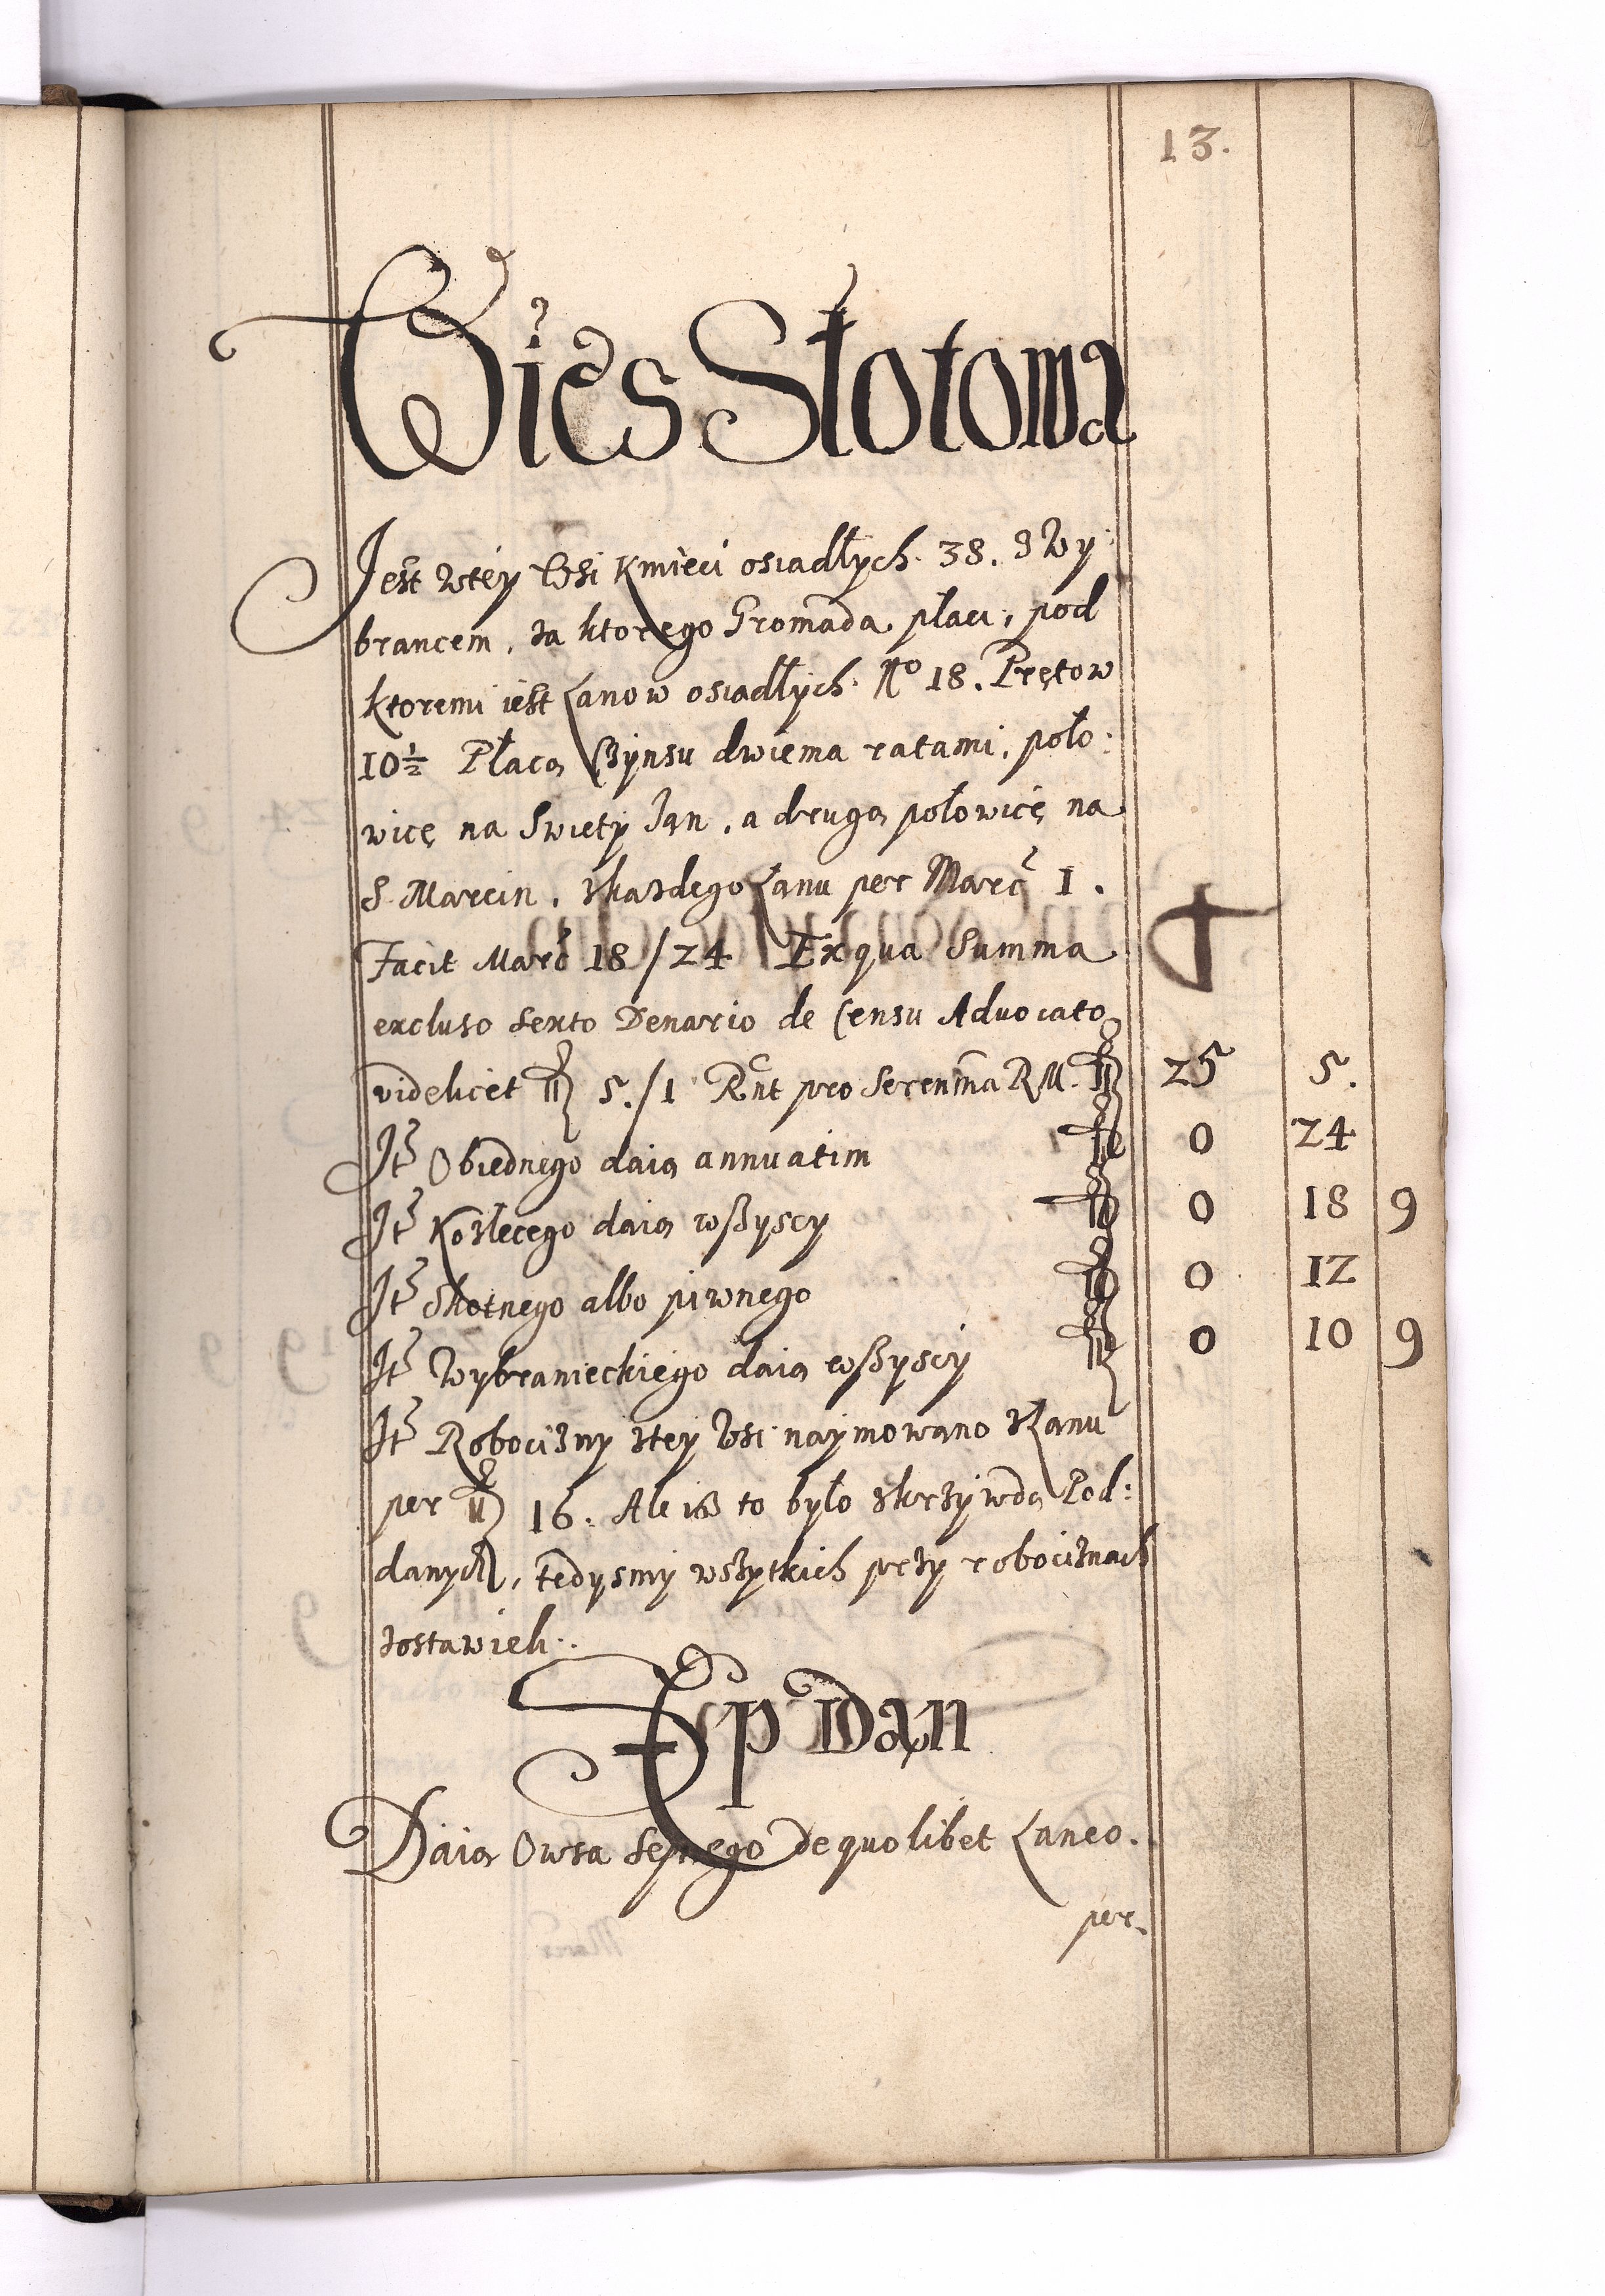 13.
Wies Słotowa
Jest wtey Wsi Kmieci osiadłych. 38. z Wy:
brancem, za ktorego Gromada płaci, pod
ktoremi iest Łanow osiadłych. No 18. Prętow
10½ Płacą Czynsu dwiema ratami, poło:
wicę na Swięty Jan, a drugą połowicę na
S. Marcin, zkazdego Łanu per Marc 1.
Facit Marc 18/24 Ex qua Summa
excluso sexto Denario de Censu Advocato
videlicet fl 5./1 Rnt pro Serenma RM. fl 25 5.
It Obiednego daią annuatim fl 0 24
It Kozlecego daią wszyscy fl 0 18 9
It Skotnego albo piwnego fl 0 12
It Wybranieckiego daią wszyscy fl 0 10 9
It Robocizny ztey Wsi naymowano z Łanu
per fl 16. Ale iż to było zkrzywdą Pod:
danych, tedysmy wszytkich przy robociznach
zostawieli.
Sep Dan
Daią Owsa Sepnego de quolibet Laneo.
per